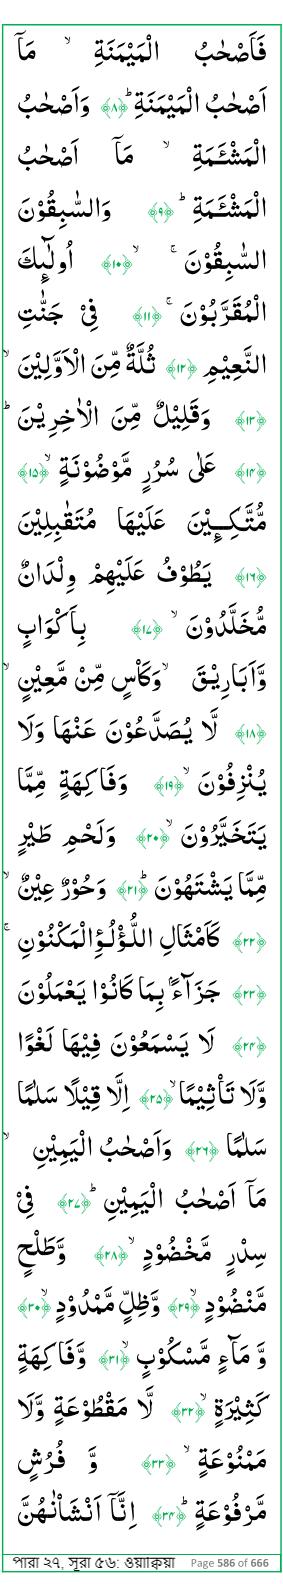 فَاَصْحٰبُ الْمَيْمَنَةِ ۙ مَاۤ
اَصْحٰبُ الْمَيْمَنَةِ ؕ ﴿۸﴾ وَاَصْحٰبُ
الْمَشْـَٔمَةِ ۙ مَاۤ اَصْحٰبُ
الْمَشْـَٔمَةِ ؕ ﴿۹﴾ وَالسّٰبِقُوْنَ
السّٰبِقُوْنَ ۚ ۙ ﴿۱۰﴾ اُولٰٓئِكَ
الْمُقَرَّبُوْنَ ۚ ﴿۱۱﴾ فِىْ جَنّٰتِ
النَّعِيْمِ ﴿۱۲﴾ ثُلَّةٌ مِّنَ الْاَوَّلِيْنَ ۙ
﴿۱۳﴾ وَقَلِيْلٌ مِّنَ الْاٰخِرِيْنَ ؕ
﴿۱۴﴾ عَلٰى سُرُرٍ مَّوْضُوْنَةٍ ۙ ﴿۱۵﴾
مُّتَّكِـِٕيْنَ عَلَيْهَا مُتَقٰبِلِيْنَ
﴿۱۶﴾ يَطُوْفُ عَلَيْهِمْ وِلْدَانٌ
مُّخَلَّدُوْنَ ۙ ﴿۱۷﴾ بِاَكْوَابٍ
وَّاَبَارِيْقَ ۙ وَكَاْسٍ مِّنْ مَّعِيْنٍ ۙ
﴿۱۸﴾ لَّا يُصَدَّعُوْنَ عَنْهَا وَلَا
يُنْزِفُوْنَ ۙ ﴿۱۹﴾ وَفَاكِهَةٍ مِّمَّا
يَتَخَيَّرُوْنَ ۙ ﴿۲۰﴾ وَلَحْمِ طَيْرٍ
مِّمَّا يَشْتَهُوْنَ ؕ ﴿۲۱﴾ وَحُوْرٌ عِيْنٌ ۙ
﴿۲۲﴾ كَاَمْثَالِ اللُّؤْلُـؤِالْمَكْنُوْنِ ۚ
﴿۲۳﴾ جَزَآءًۢ بِمَا كَانُوْا يَعْمَلُوْنَ
﴿۲۴﴾ لَا يَسْمَعُوْنَ فِيْهَا لَغْوًا
وَّلَا تَاْثِيْمًا ۙ ﴿۲۵﴾ اِلَّا قِيْلًا سَلٰمًا
سَلٰمًا ﴿۲۶﴾ وَاَصْحٰبُ الْيَمِيْنِ ۙ
مَاۤ اَصْحٰبُ الْيَمِيْنِ ؕ ﴿۲۷﴾ فِىْ
سِدْرٍ مَّخْضُوْدٍ ۙ ﴿۲۸﴾ وَّطَلْحٍ
مَّنْضُوْدٍ ۙ ﴿۲۹﴾ وَّظِلٍّ مَّمْدُوْدٍ ۙ ﴿۳۰﴾
وَّ مَآءٍ مَّسْكُوْبٍ ۙ ﴿۳۱﴾ وَّفَاكِهَةٍ
كَثِيْرَةٍ ۙ ﴿۳۲﴾ لَّا مَقْطُوْعَةٍ وَّلَا
مَمْنُوْعَةٍ ۙ ﴿۳۳﴾ وَّ فُرُشٍ
مَّرْفُوْعَةٍ ؕ ﴿۳۴﴾ اِنَّاۤ اَنْشَاْنٰهُنَّ
পারা ২৭, সূরা ৫৬: ওয়াক্বিয়া Page 586 of 666